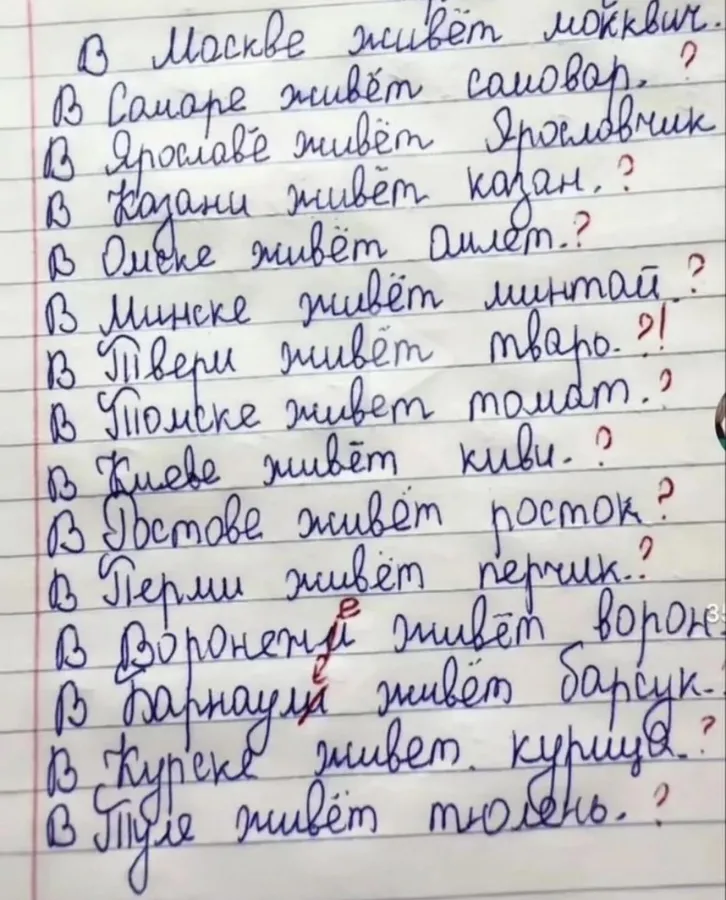 В Москве живёт москвич.
В Самаре живёт самовар. ?
В Ярославе живёт Ярославчик
В Казани живёт казан. ?
В Омске живёт омлет. ?
В Минске живёт минтай. ?
В Твери живёт тварь. ?!
В Томске живет томат. ?
В Киеве живёт киви. ?
В Ростове живёт росток ?
В Перми живёт перчик. ?
В Воронежие живёт ворон.
В Барнауле живёт барсук.
В Курске живет курица. ?
В Туле живёт тюлень. ?